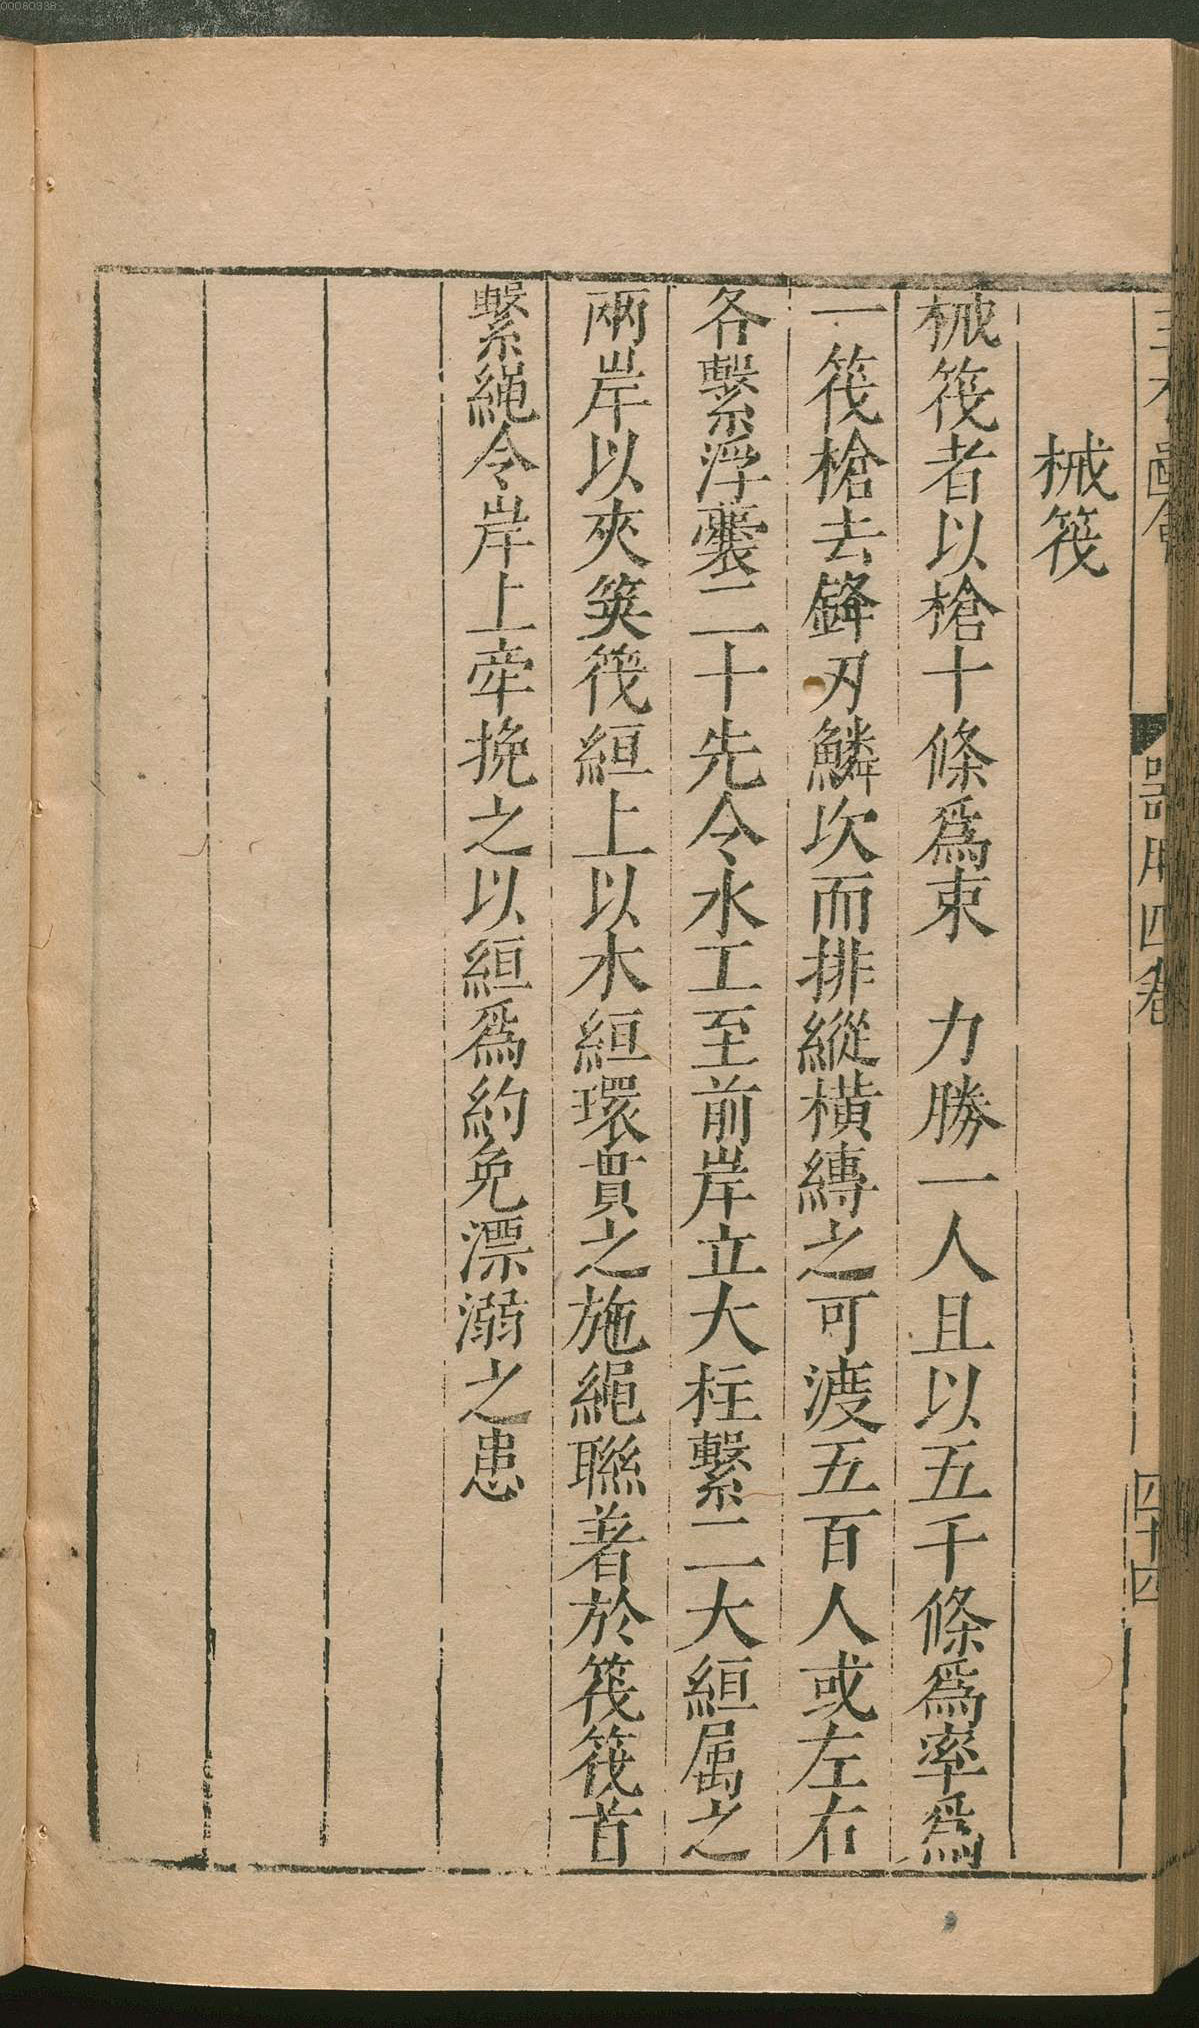 00080338
三才圖會
器用四卷
四十四
械筏
械筏者以槍十條爲束 力勝一人且以五千條爲率爲
一筏槍去鋒刃鱗次而排縱橫縛之可渡五百人或左右
各繫浮囊二十先令水工至前岸立大柱繫二大絙属之
兩岸以夾筴筏絙上以木絙環貫之施繩聯著於筏筏首
繫繩令岸上牽挽之以絙爲約免漂溺之患